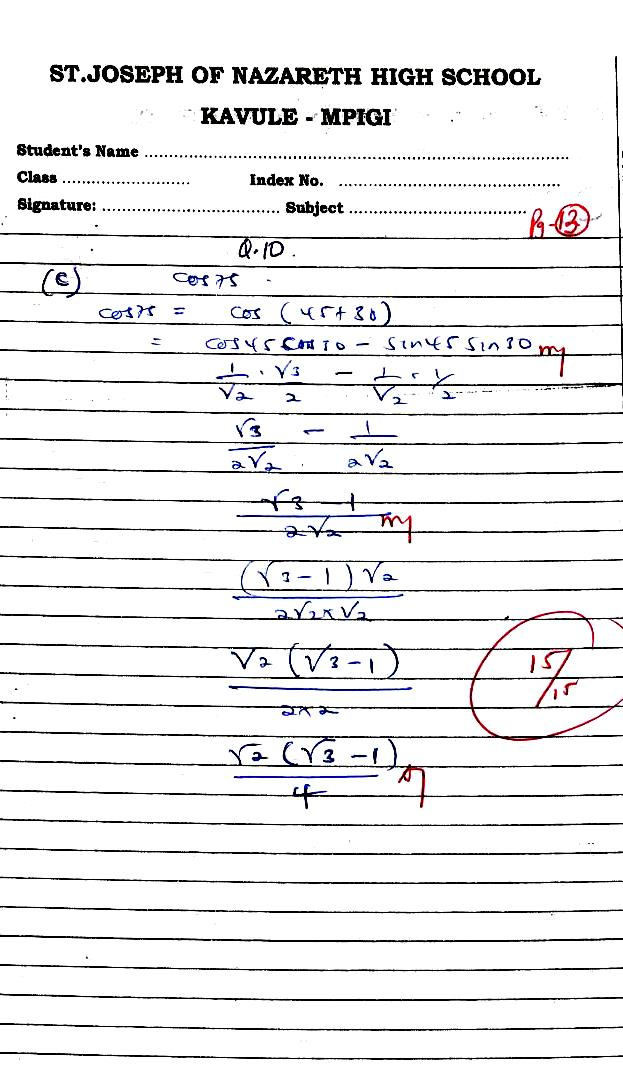 ST.JOSEPH OF NAZARETH HIGH SCHOOL
KAVULE - MPIGI
Student's Name ..........
Class .......... Index No. ..........
Signature: .......... Subject ..........
Pg-13
Q.10.
(c) cos75.
cos75 = cos (45+30)
= cos45 cos30 - sin45 sin30 m1
1/√2 . √3/2 - 1/√2 . 1/2
√3/2√2 - 1/2√2
√3 - 1/2√2 m1
(√3-1)√2/2√2×√2
√2(√3-1)/2×2
15/15
√2(√3-1)/4 A1